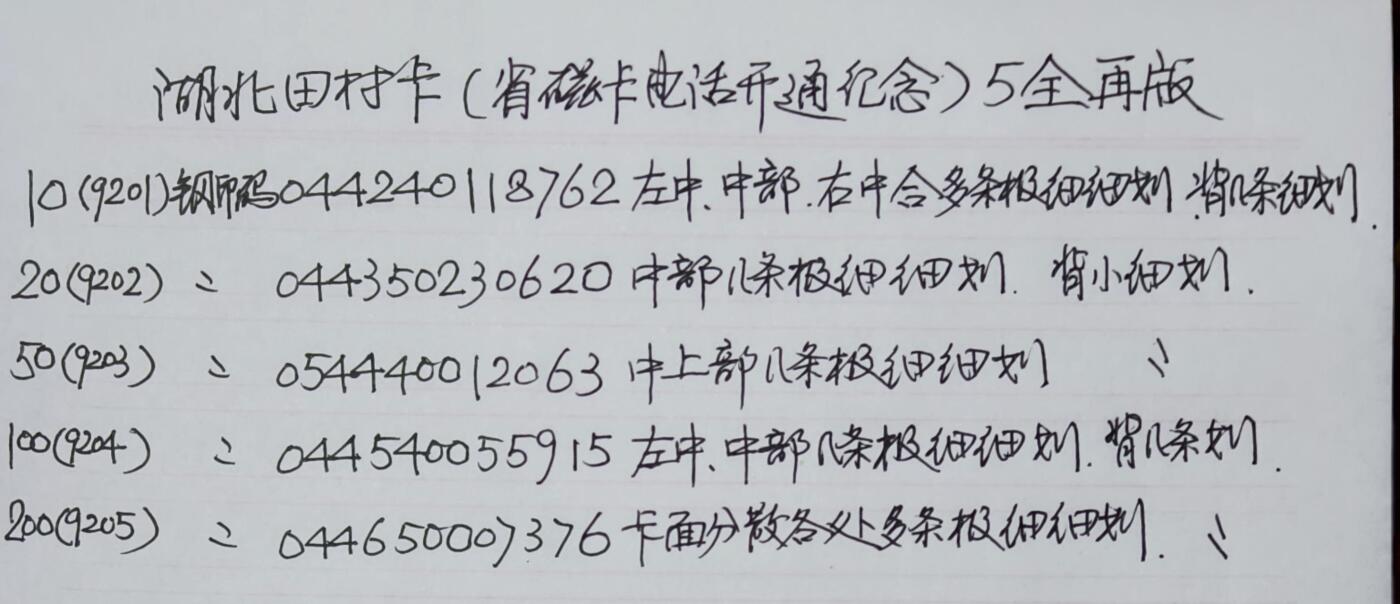 湖北田村卡(省磁卡电话开通纪念)5全再版
10(9201)钢印码044240118762左中、中部、右中合多条极细细划、背几条细划.
20(9202) 〃 044350230620中部几条极细细划. 背小细划.
50(9203) 〃 054440012063中上部几条极细细划 〃
100(9204) 〃 044540055915左中、中部几条极细细划. 背几条划.
200(9205) 〃 044650007376卡面分散各处多条极细细划. 〃